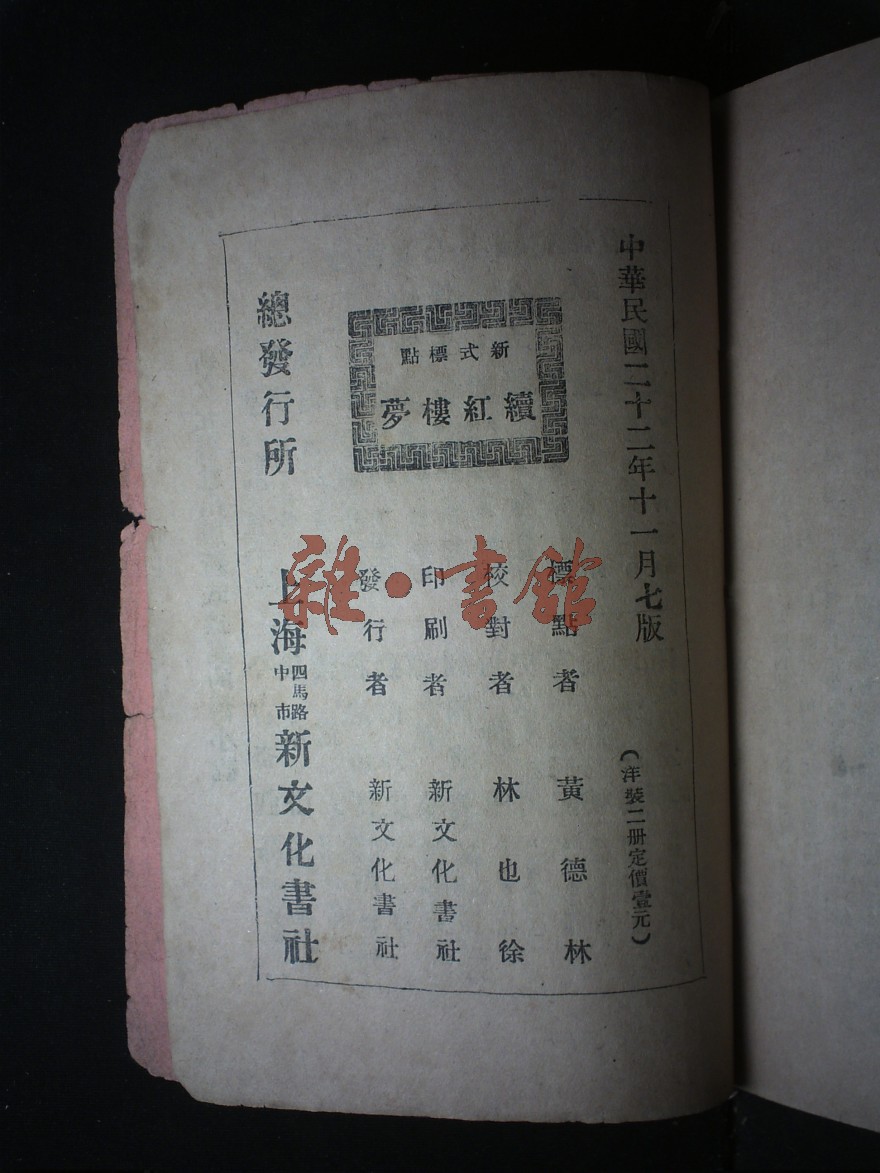 中華民國二十二年十一月七版
(洋裝二册定價壹元)
新式標點
續紅樓夢
標點者 黃德林
校對者 林也徐
印刷者 新文化書社
發行者 新文化書社
總發行所 上海四馬路中市新文化書社
雜·書館